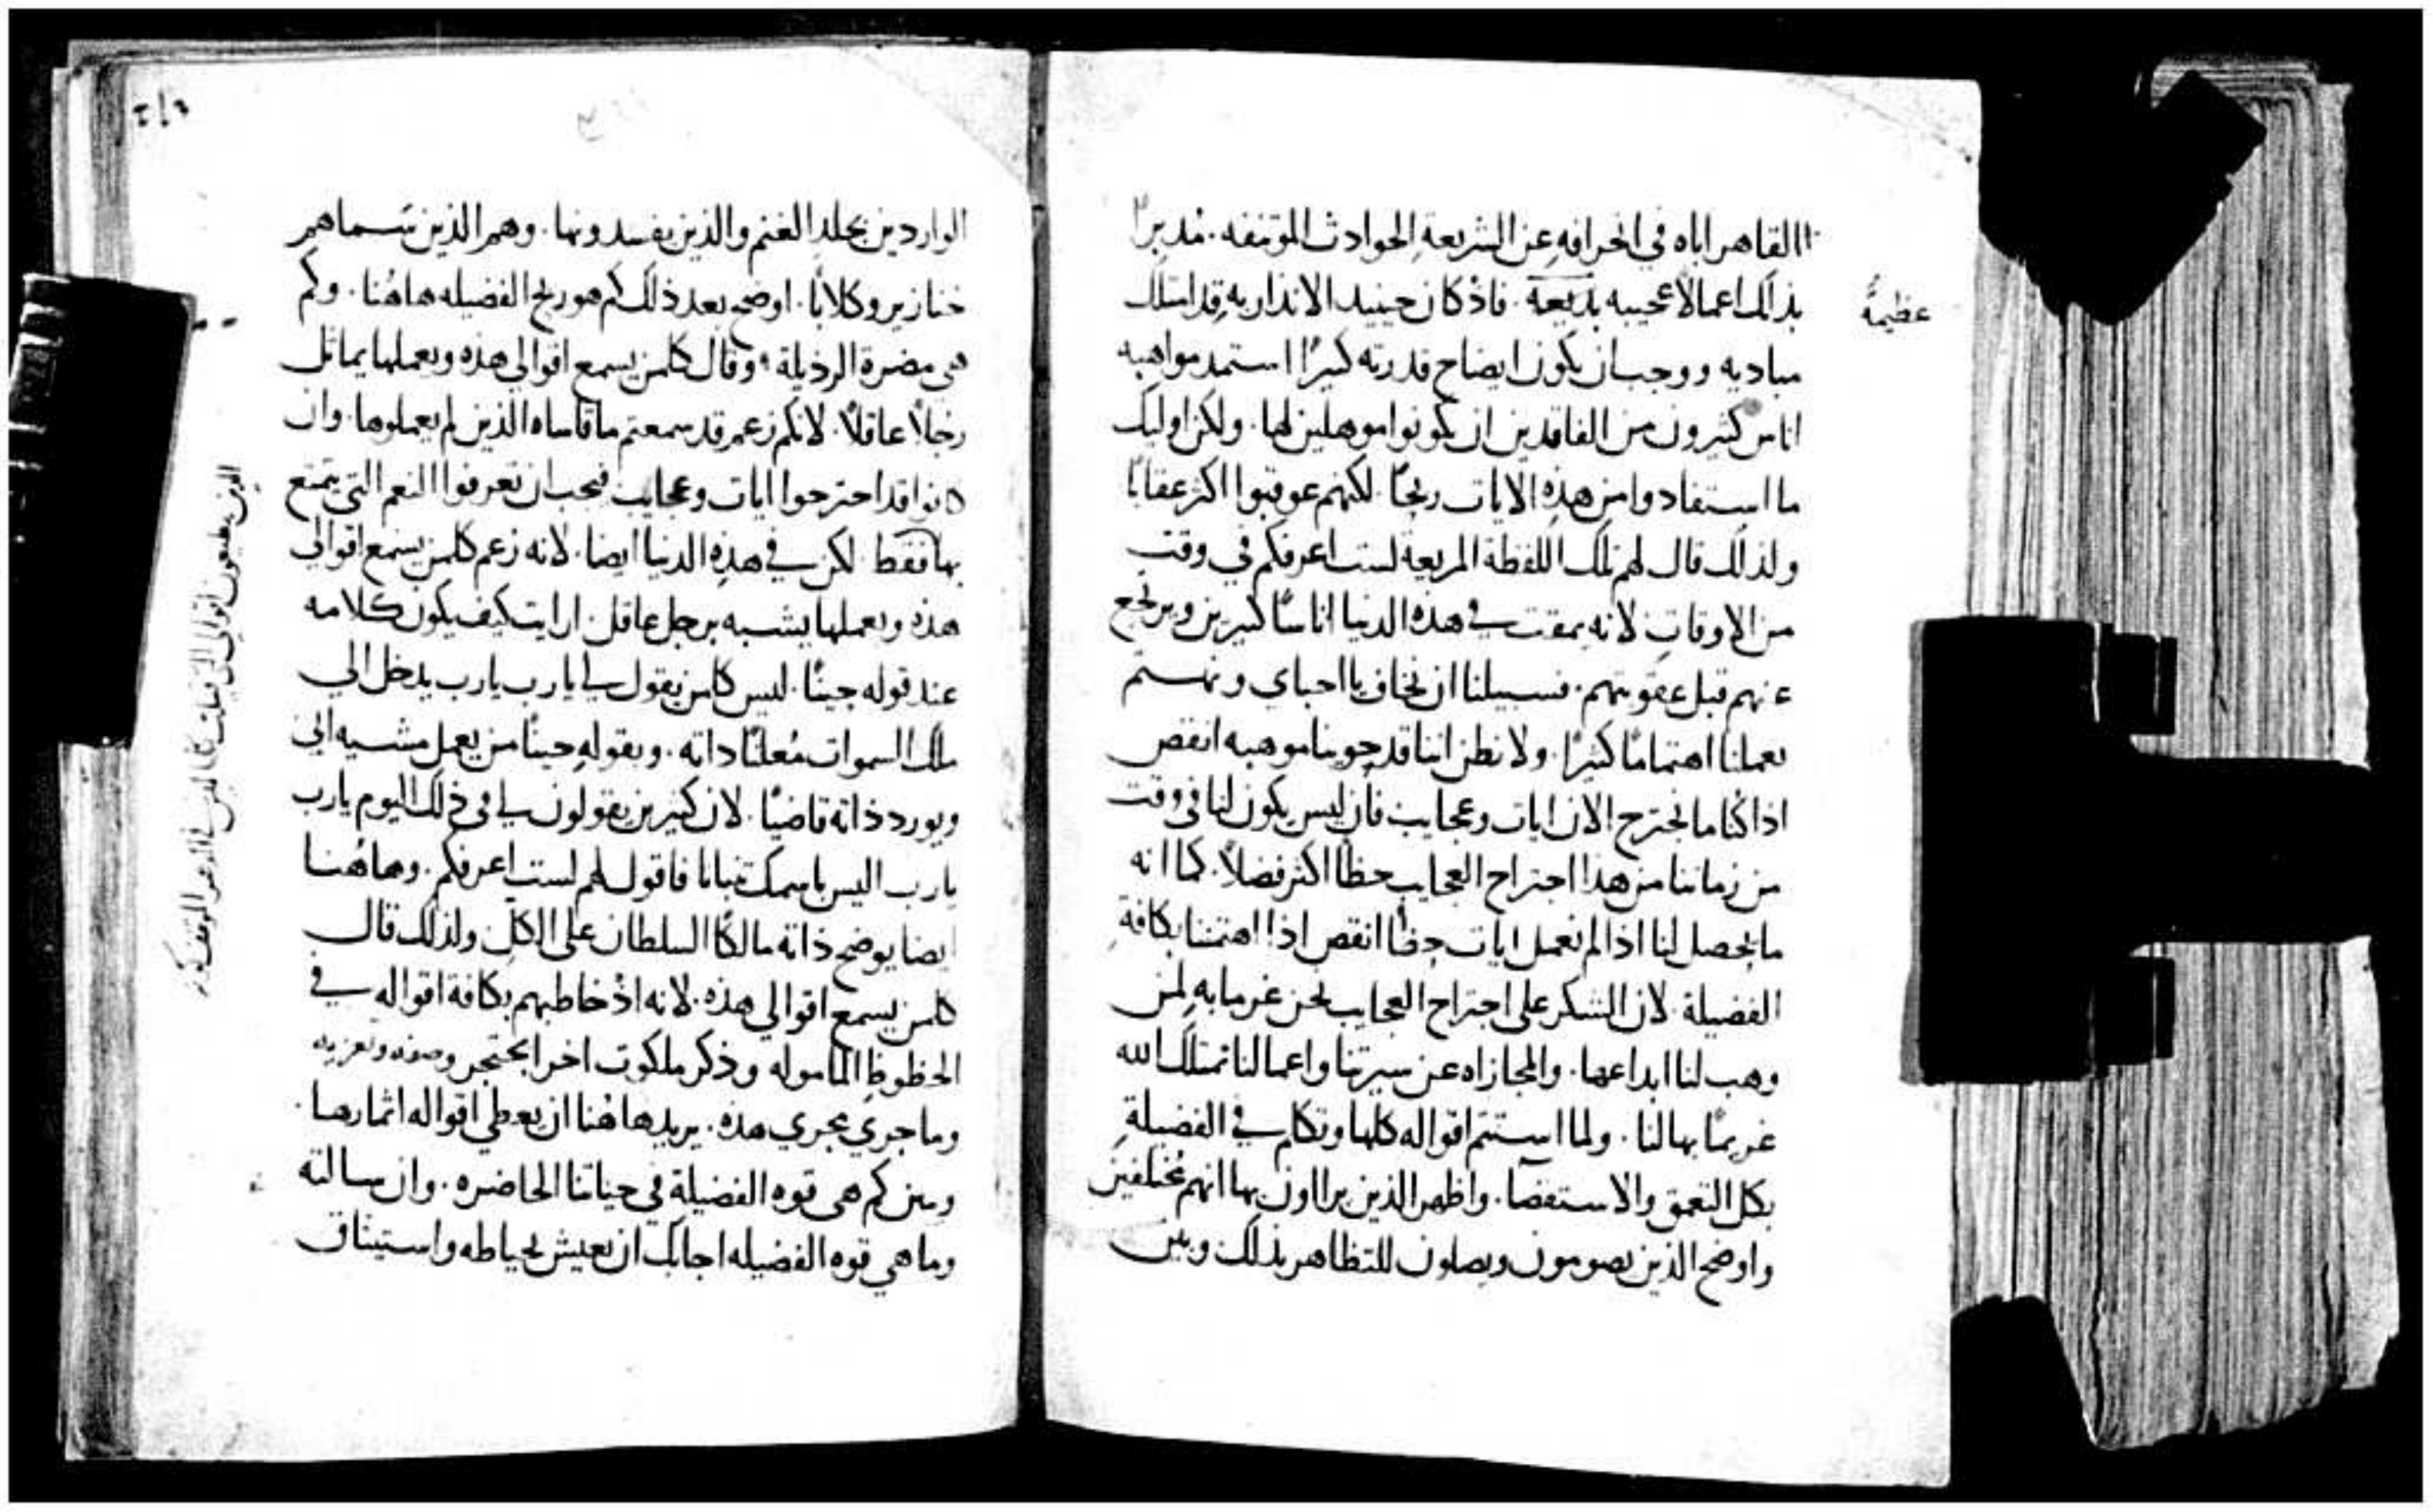 القاهر اياه في انحرافه عن الشريعة الحوادث الموتنفه. مدبرًا
بذلك اعمالاً عجيبه بديعة. فاذ كان حينيد الانذار به قد امتلك
عظيمةً
مباديه ووجب ان يكون ايضاح قدرته كبيرًا استمد مواهبه
اناس كثيرون من الفاقدين ان يكونوا موهلين لها. ولكن اوليك
ما استفادوا من هذه الايات ربحًا. لكنهم عوقبوا اكثر عقابًا
ولذلك قال لهم تلك اللفظة المريعة لست اعرفكم في وقت
من الاوقات لانه يمقت في هذه الدنيا اناسًا كثيرين ويرتجع
عنهم قبل عقوبتهم. فسبيلنا ان نخاف يا احباي ونهتم
بعملنا اهتمامًا كثيرًا. ولا نظن اننا قد حوينا موهبه انقص
اذا كنا ما نجترح الان ايات وعجايب فان ليس يكون لنا في وقت
من زماننا من هذا اجتراح العجايب حظًا اكثر فضلاً. كما انه
ما يحصل لنا اذا لم نعمل ايات حظًا انقص اذا اهتممنا بكافة
الفضيلة. لان الشكر على اجتراح العجايب نحن غرما به لمن
وهب لنا ابداعها. والمجازاه عن سيرتنا واعمالنا نمتلك الله
غريمًا بها لنا. ولما استتم اقواله كلها وتكلم في الفضيلة
بكل التعمق والاستقصا. واظهر الذين يراون بها انهم مختلفين
واوضح الذين يصومون ويصلون للتظاهر بذلك وبين
الواردين بجلد الغنم والذين يفسدونها. وهم الذين سماهم
خنازير وكلابًا. اوضح بعد ذلك كم هو ربح الفضيله هاهنا. وكم
هي مضرة الرذيلة. وقال كلمن يسمع اقوالي هذه ويعملها يماثل
رجلاً عاقلاً. لانكم زعم قد سمعتم ما قاساه الذين لم يعملوها. وان
كانوا قد اجترحوا ايات وعجايب فيجب ان تعرفوا النعم التي يتمتع
بها فقط. لكن في هذه الدنيا ايضا. لانه زعم كلمن يسمع اقوالي
هذه ويعملها يشبه برجل عاقل. ارايت كيف يكون كلامه
عند قوله حينًا. ليس كلمن يقول لي يا رب يا رب يدخل الى
ملك السموات معلنًا ذاته. وبقوله حينًا من يعمل مشيه ابي
ويورد ذاته قاضيًا. لان كثيرين يقولون لي في ذلك اليوم يا رب
يا رب اليس باسمك تنبانا فاقول لهم لست اعرفكم. وهاهنا
ايضا يوضح ذاته مالكًا السلطان على الكل ولذلك قال
كلمن يسمع اقوالي هذه. لانه اذ خاطبهم بكافة اقواله في
الحظوظ المامولة وذكر ملكوت اخرا يحتجر وصفه وتعزيه
وما جرى مجرى هذه. يريد هاهنا ان يعطي اقواله اثمارها.
وبين كم هي قوه الفضيلة في حياتنا الحاضره. وان سالته
وما هي قوه الفضيله اجابك ان نعيش بحياطه واستيثاق